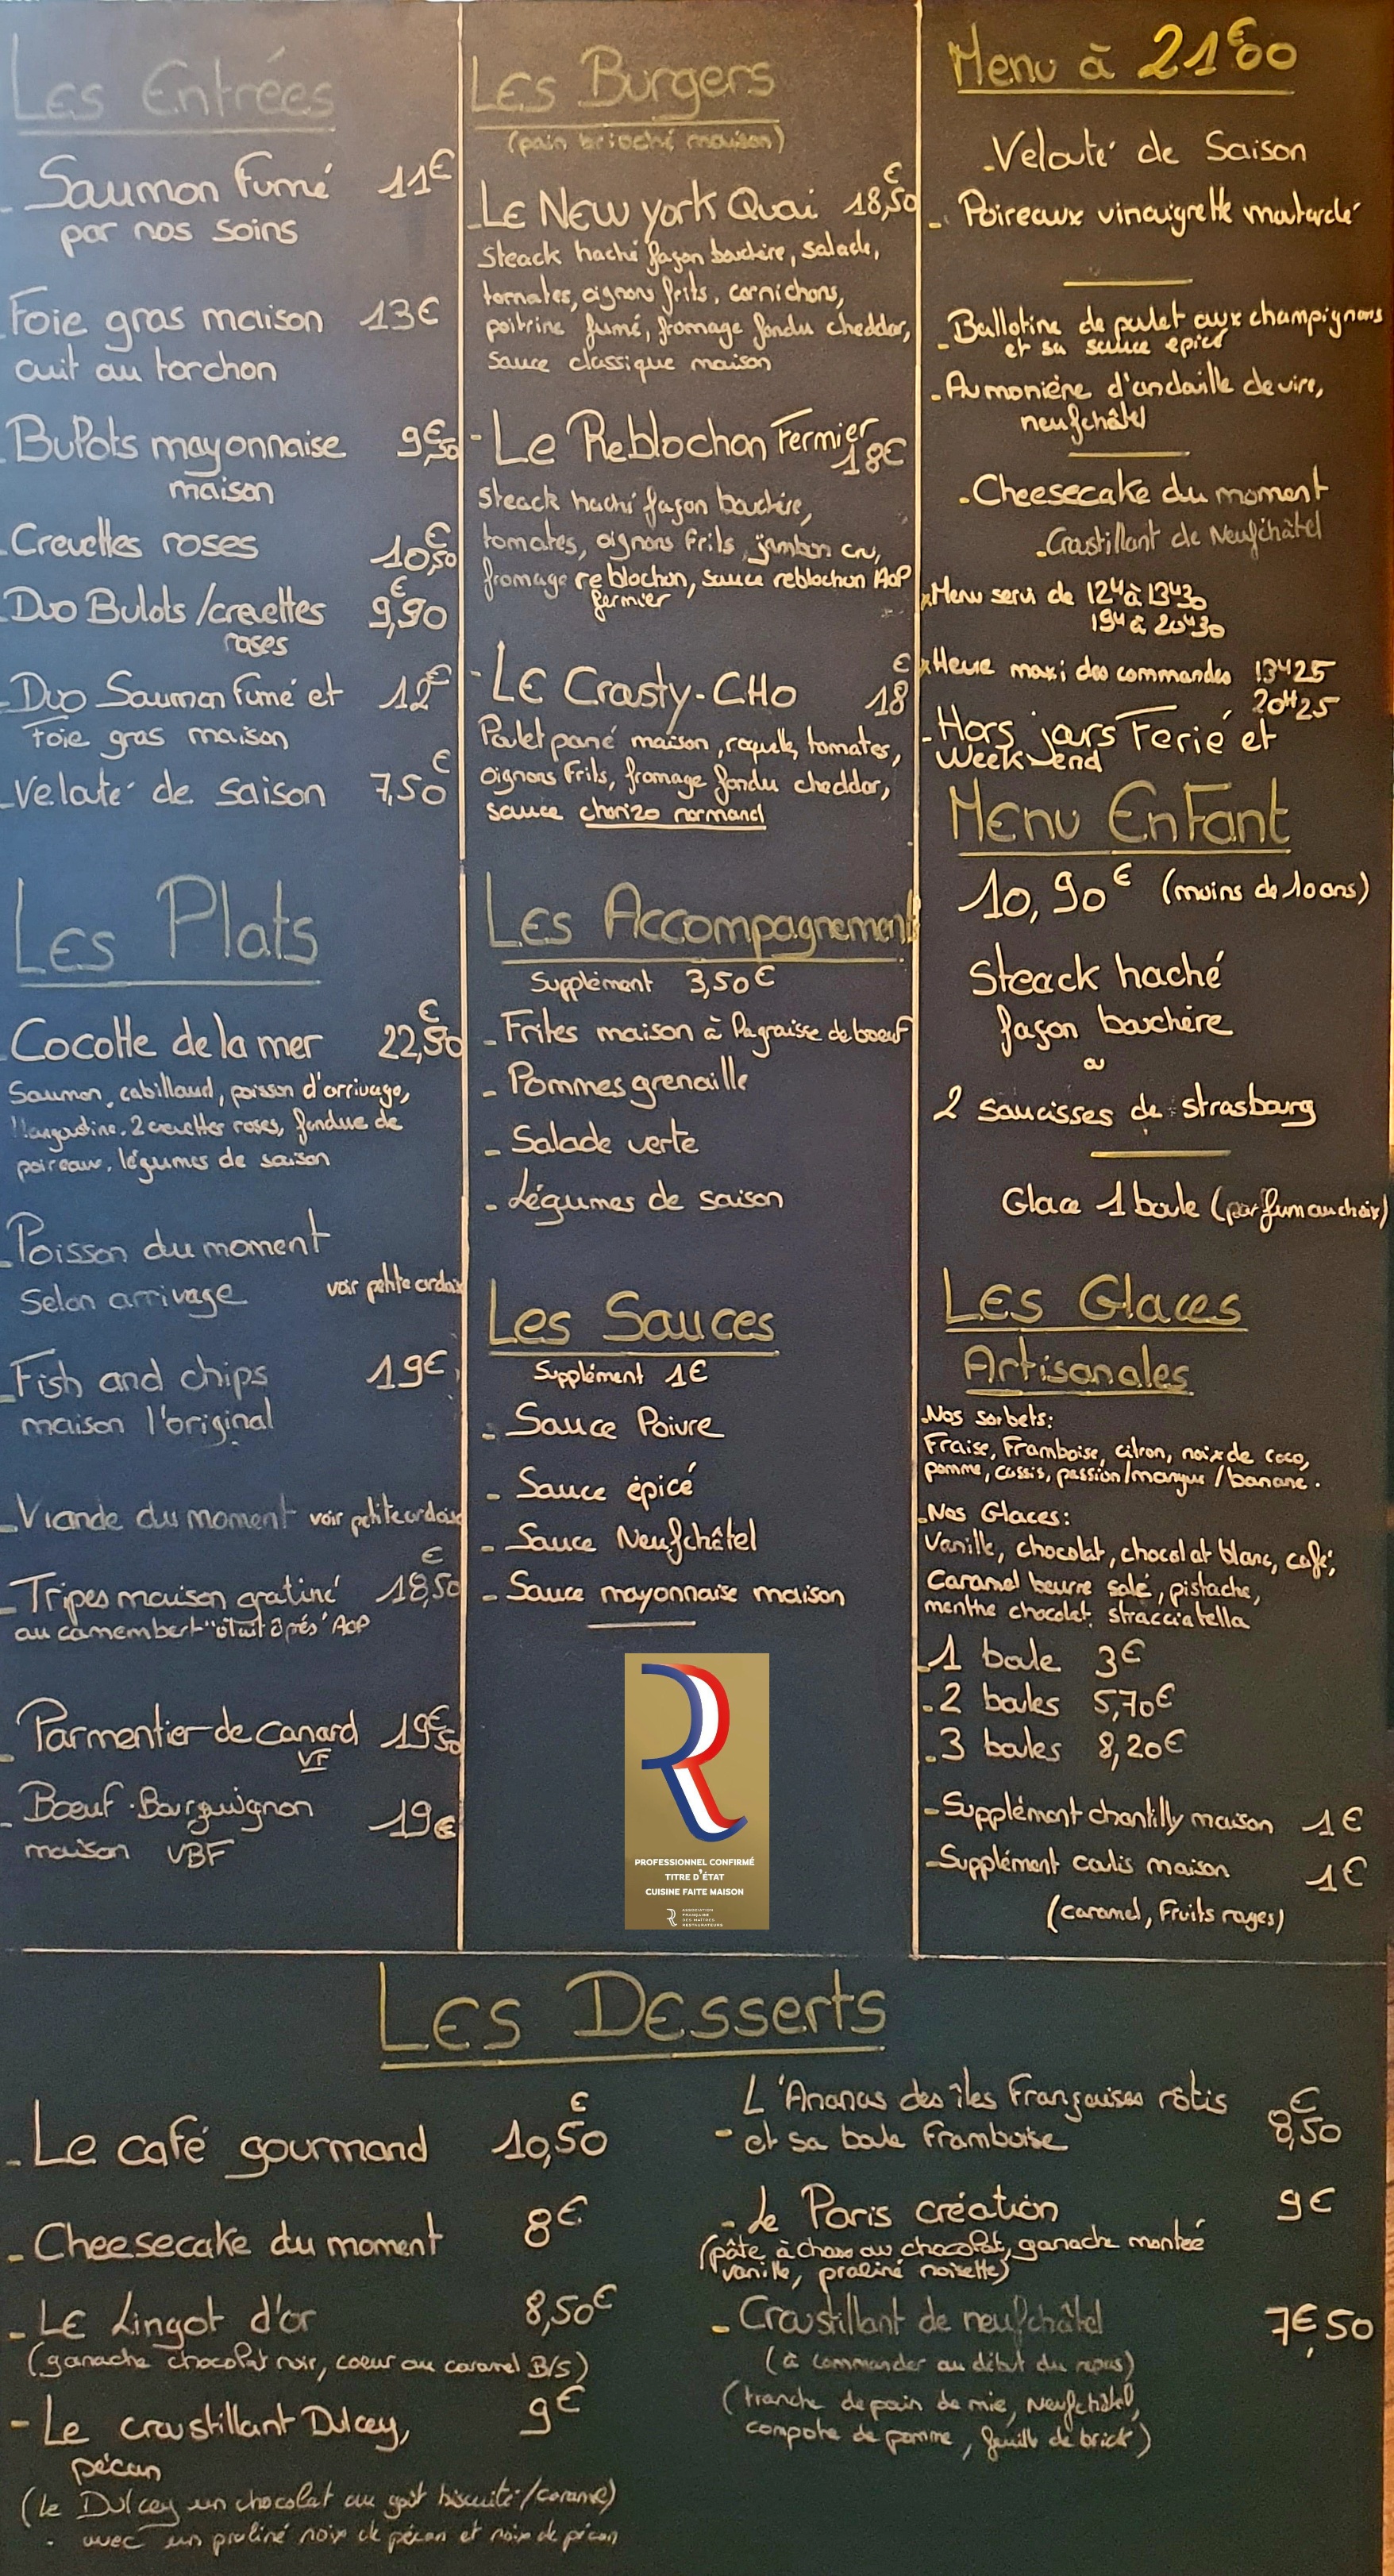 Les Entrées
- Saumon Fumé 11€
par nos soins
- Foie gras maison 13€
cuit au torchon
- Bulots mayonnaise 9€,50
maison
- Crevettes roses 10,50€
- Duo Bulots/crevettes 9,90€
roses
- Duo Saumon fumé et 12€
Foie gras maison
- Velouté de saison 7,50€
Les Plats
- Cocotte de la mer 22,50€
Saumon, cabillaud, poisson d'arrivage,
langoustine, 2 crevettes roses, fondue de
poireaux, légumes de saison
- Poisson du moment
Selon arrivage voir petite ardoise
- Fish and chips 19€
maison l'original
- Viande du moment voir petite ardoise
- Tripes maison gratiné 18,50€
au camembert AOP
- Parmentier de canard 19€50
VF
- Bœuf Bourguignon 19€
maison VBF
Les Burgers
(pain brioché maison)
- Le New york Quai 18,50€
Steack haché façon bouchère, salade,
tomates, oignons frits, cornichons,
poitrine fumé, fromage fondu cheddar,
Sauce classique maison
- Le Reblochon Fermier
18€
Steack haché façon bouchère,
tomates, oignons Frits, jambon cru,
fromage reblochon, sauce reblochon AOP
fermier
- Le Crousty-CHO 18€
Poulet pané maison, roquette, tomates,
oignons Frits, fromage fondu cheddar,
sauce chorizo normand
Les Accompagnement
Supplément 3,50€
- Frites maison à la graisse de boeuf
- Pommes grenaille
- Salade verte
- Légumes de saison
Les Sauces
Supplément 1€
- Sauce Poivre
- Sauce épicé
- Sauce Neufchâtel
- Sauce mayonnaise maison
PROFESSIONNEL CONFIRMÉ
TITRE D'ÉTAT
CUISINE FAITE MAISON
ASSOCIATION
FRANÇAISE
DES MAÎTRES
RESTAURATEURS
Menu à 21€00
- Velouté de Saison
- Poireaux vinaigrette moutardé
- Ballotine de poulet aux champignons
et sa sauce epicé
- Aumonière d'andouille de vire,
neufchâtel
- Cheesecake du moment
- Croustillant de Neufchâtel
* Menu servi de 12H à 13H30
19H à 20H30
* Heure maxi des commandes 13H25
20H25
- Hors jours Ferié et
Week-end
Menu Enfant
10,90€ (moins de 10 ans)
Steack haché
façon bouchère
ou
2 saucisses de strasbourg
Glace 1 boule (parfum au choix)
Les Glaces
Artisanales
- Nos sorbets:
Fraise, Framboise, citron, noix de coco,
pomme, cassis, passion/mangue/banane.
- Nos Glaces:
Vanille, chocolat, chocolat blanc, café,
Caramel beurre salé, pistache,
menthe chocolat, stracciatella
- 1 boule 3€
- 2 boules 5,70€
- 3 boules 8,20€
- Supplément chantilly maison 1€
- Supplément coulis maison 1€
(caramel, Fruits rouges)
Les Desserts
- Le café gourmand 10,50€
- Cheesecake du moment 8€
- Le Lingot d'or 8,50€
(ganache chocolat noir, coeur au caramel B/S)
- Le croustillant Dulcey, 9€
pécan
(Le Dulcey un chocolat au goût biscuité/caramel)
avec un praliné noix de pécan et noix de pécan
L'Ananas des îles Françaises rôtis 8,50€
- et sa boule Framboise
- Le Paris création 9€
(pâte à choux au chocolat, ganache montée
vanille, praliné noisette)
- Croustillant de neufchâtel 7€,50
(à commander au début du repas)
(tranche de pain de mie, Neufchâtel,
compote de pomme, feuille de brick)